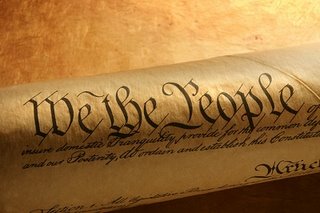 We the People of
insure domestic Tranquility, provide for the common
and our Posterity, do ordain and establish this Constitution
Article
Section 1. All